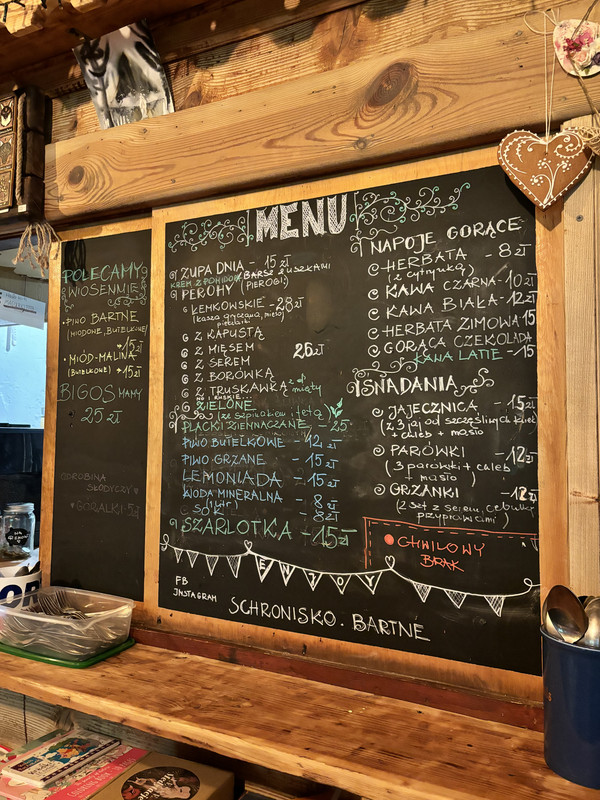 POLECAMY
WIOSENNIE
• PIWO BARTNE
(MIODONE, BUTELKOWE)
15 zł
• MIÓD-MALINA
(BUTELKOWE) • 15 zł
BIGOS MAMY
25 zł
ODROBINA
SŁODYCZY
♥ GÓRALKI 5 zł
MENU
ZUPA DNIA - 15 zł
KREM Z POMIDORÓW BARSZCZ Z USZKAMI
PEROHY (PIEROGI)
ŁEMKOWSKIE - 28 zł
(kasza gryczana, mięso
Z KAPUSTĄ
Z MIĘSEM 26 zł
Z SEREM
Z BORÓWKĄ
Z TRUSKAWKĄ z miętą
ZIELONE
(ze szpinakiem i fetą)
PLACKI ZIEMNIACZANE - 25
PIWO BUTELKOWE - 12 zł
PIWO GRZANE - 15 zł
LEMONIADA - 15 zł
WODA MINERALNA - 8 zł
SOKI - 8 zł
SZARLOTKA - 15 -
NAPOJE GORĄCE
HERBATA - 8 zł
(z cytrynką)
KAWA CZARNA - 10 zł
KAWA BIAŁA - 12 zł
HERBATA ZIMOWA 15
GORĄCA CZEKOLADA
KAWA LATTE - 15
ŚNIADANIA
JAJECZNICA - 15 zł
(z 3 jaj od szczęśliwych kurek
+ caleb + masło
PARÓWKI - 12 zł
(3 parówki + caleb +
masło)
GRZANKI - 12 zł
(2 szt z serem, cebulką
przyprawami)
CHWILOWY
BRAK
ENJOY
FB
INSTAGRAM
SCHRONISKO.BARTNE